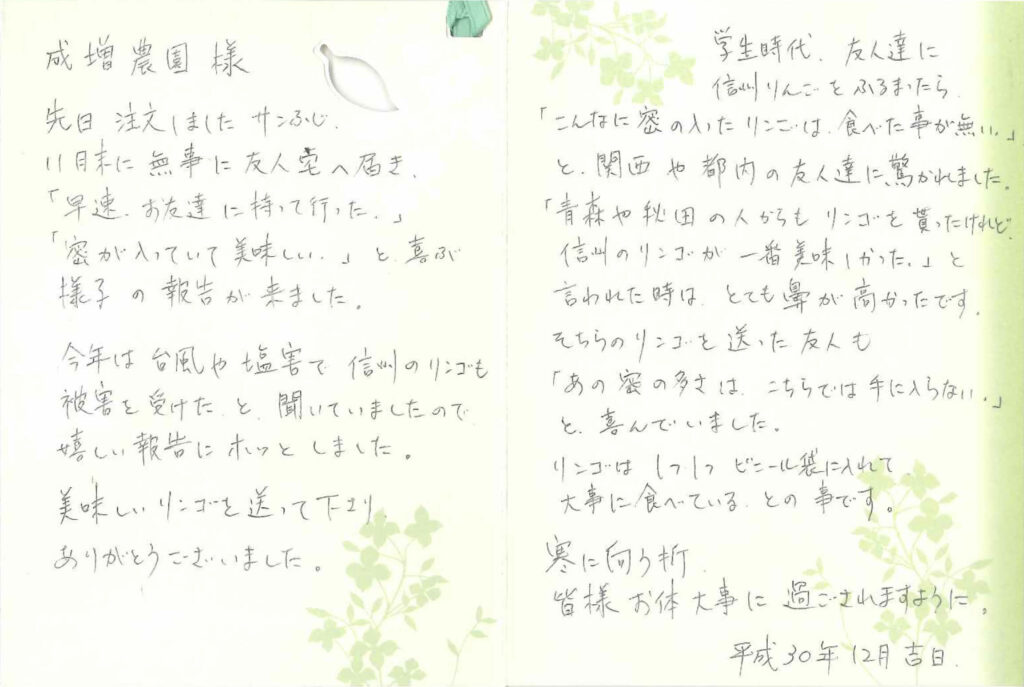 成増農園様
先日 注文しました サンふじ、
11月末に 無事に 友人宅へ届き、
「早速、お友達に持って行った。」
「密が入っていて 美味しい。」と、喜ぶ
様子の 報告が 来ました。
今年は 台風や 塩害で 信州のリンゴも
被害を受けた、と、聞いていましたので、
嬉しい報告に ホッと しました。
美味しいリンゴを送って下さり、
ありがとうございました。
学生時代、友人達に
信州りんごをふるまったら、
「こんなに密の入ったリンゴは、食べた事が無い。」
と、関西や都内の友人達に驚かれました。
「青森や秋田の人からも リンゴを貰ったけれど、
信州のリンゴが 一番美味しかった。」と
言われた時は、とても鼻が高かったです。
そちらのリンゴを送った友人も
「あの密の多さは、こちらでは手に入らない。」
と、喜んでいました。
リンゴは 1つ1つ ビニール袋に入れて、
大事に食べている、との事です。
寒に向う折、
皆様 お体大事に 過ごされますように。
平成30年12月吉日.